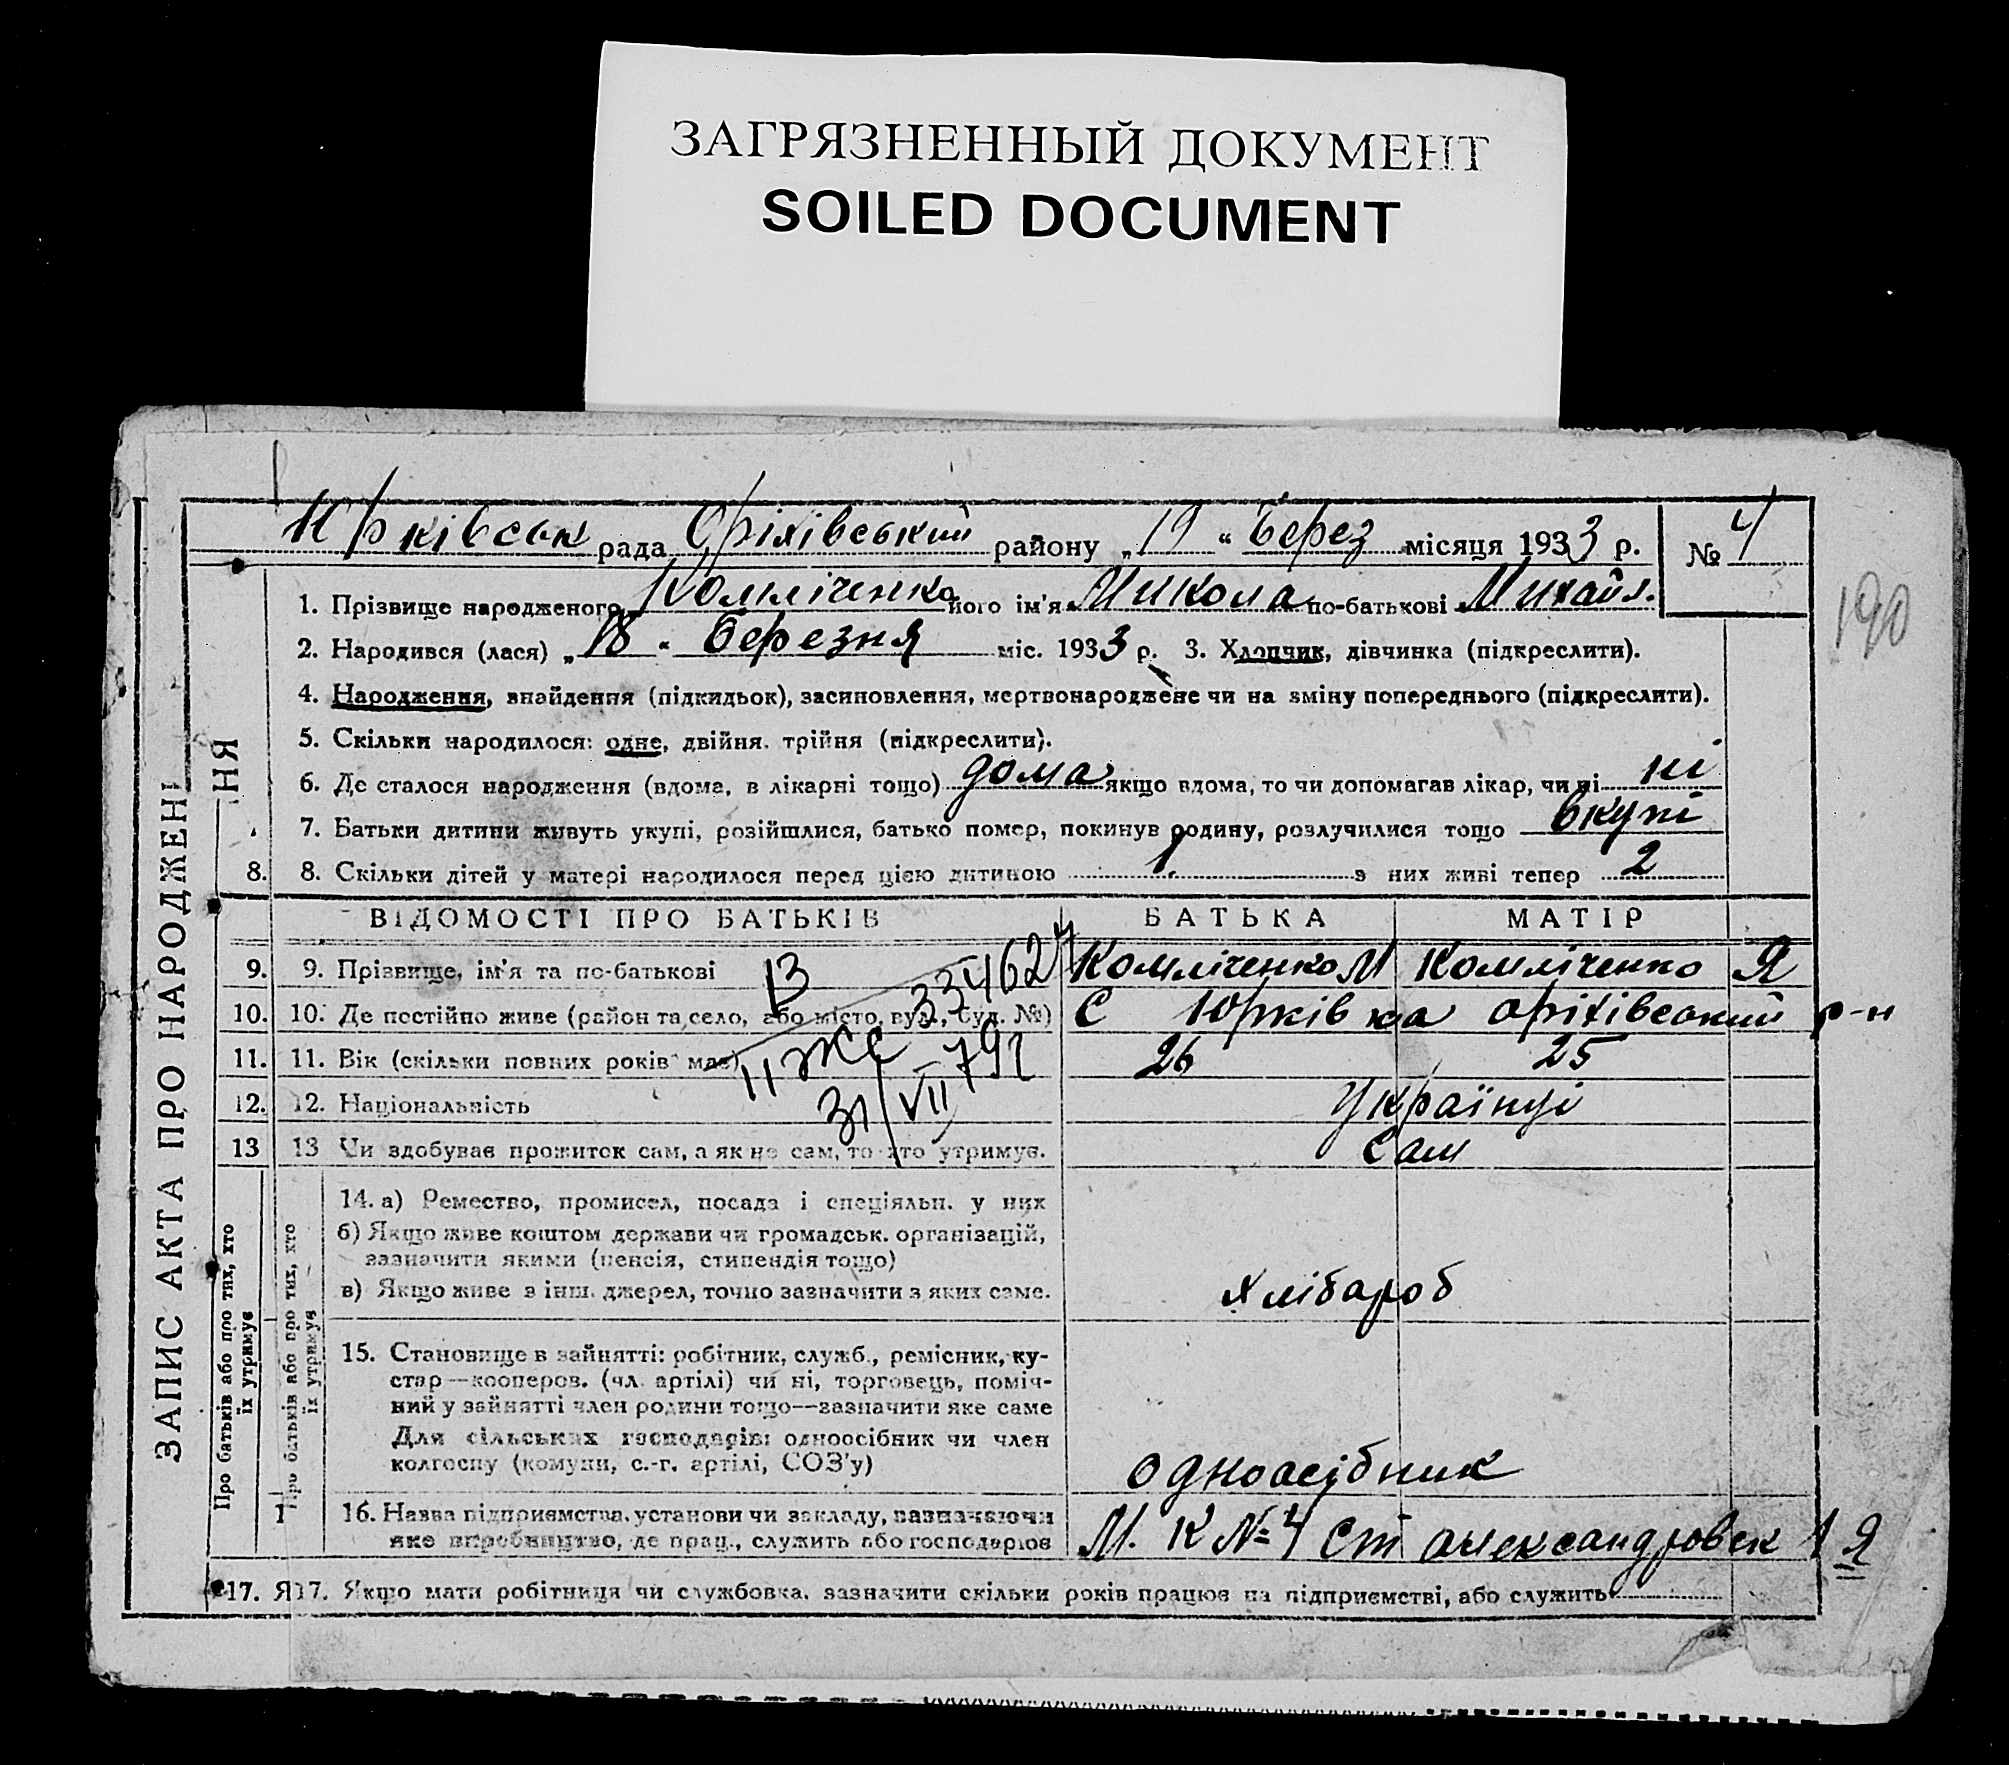 ЗАГРЯЗНЕННЫЙ ДОКУМЕНТ
SOILED DOCUMENT
Юрківськ рада Оріхівський району „19“ Берез місяця 1933 р. № 4
190
1. Прізвище народженого Комліченко його ім'я Микола по-батькові Михайл.
2. Народився (лася) „18“ березня міс. 1933 р. 3. Хлопчик, дівчинка (підкреслити).
4. Народження, знайдення (підкидьок), засиновлення, мертвонароджене чи на зміну попереднього (підкреслити).
5. Скільки народилося: одне, двійня, трійня (підкреслити).
6. Де сталося народження (вдома, в лікарні тощо) дома якщо вдома, то чи допомагав лікар, чи ні ні
7. Батьки дитини живуть укупі, розійшлися, батько помер, покинув родину, розлучилися тощо вкупі
8. 8. Скільки дітей у матері народилося перед цією дитиною 1 з них живі тепер 2
ВІДОМОСТІ ПРО БАТЬКІВ БАТЬКА МАТІР
9. 9. Прізвище, ім'я та по-батькові Комліченко М Комліченко Я
10. 10. Де постійно живе (район та село, або місто, вул., буд. №) С Юрківка Оріхівський р-н
11. 11. Вік (скільки повних років має) 26 25
12. 12. Національність Українці
13 13 Чи здобуває прожиток сам, а як не сам, то хто утримує. Сам
ІІ ЖС 334624
31/VII 79г
14. а) Ремество, промисел, посада і спеціяльн. у них
б) Якщо живе коштом держави чи громадськ. організацій,
зазначити якими (пенсія, стипендія тощо)
в) Якщо живе з інш. джерел, точно зазначити з яких саме. хлібароб
15. Становище в зайнятті: робітник, служб., ремісник, ку-
стар—кооперов. (чл. артілі) чи ні, торговець, поміч-
ний у зайнятті член родини тощо—зазначити яке саме
Для сільських господарів: одноосібник чи член
колгоспу (комуни, с.-г. артілі, СОЗ'у) одноасібник
1 16. Назва підприємства, установи чи закладу, зазначаючи
яке виробництво, де прац., служить або господарює М. К № 4 ст александровск 1 Я
17. Я 17. Якщо мати робітниця чи службовка, зазначити скільки років працює на підприємстві, або служить
ЗАПИС АКТА ПРО НАРОДЖЕНН
НЯ
Про батьків або про тих, хто
їх утримує
Про батьків або про тих, хто
їх утримує